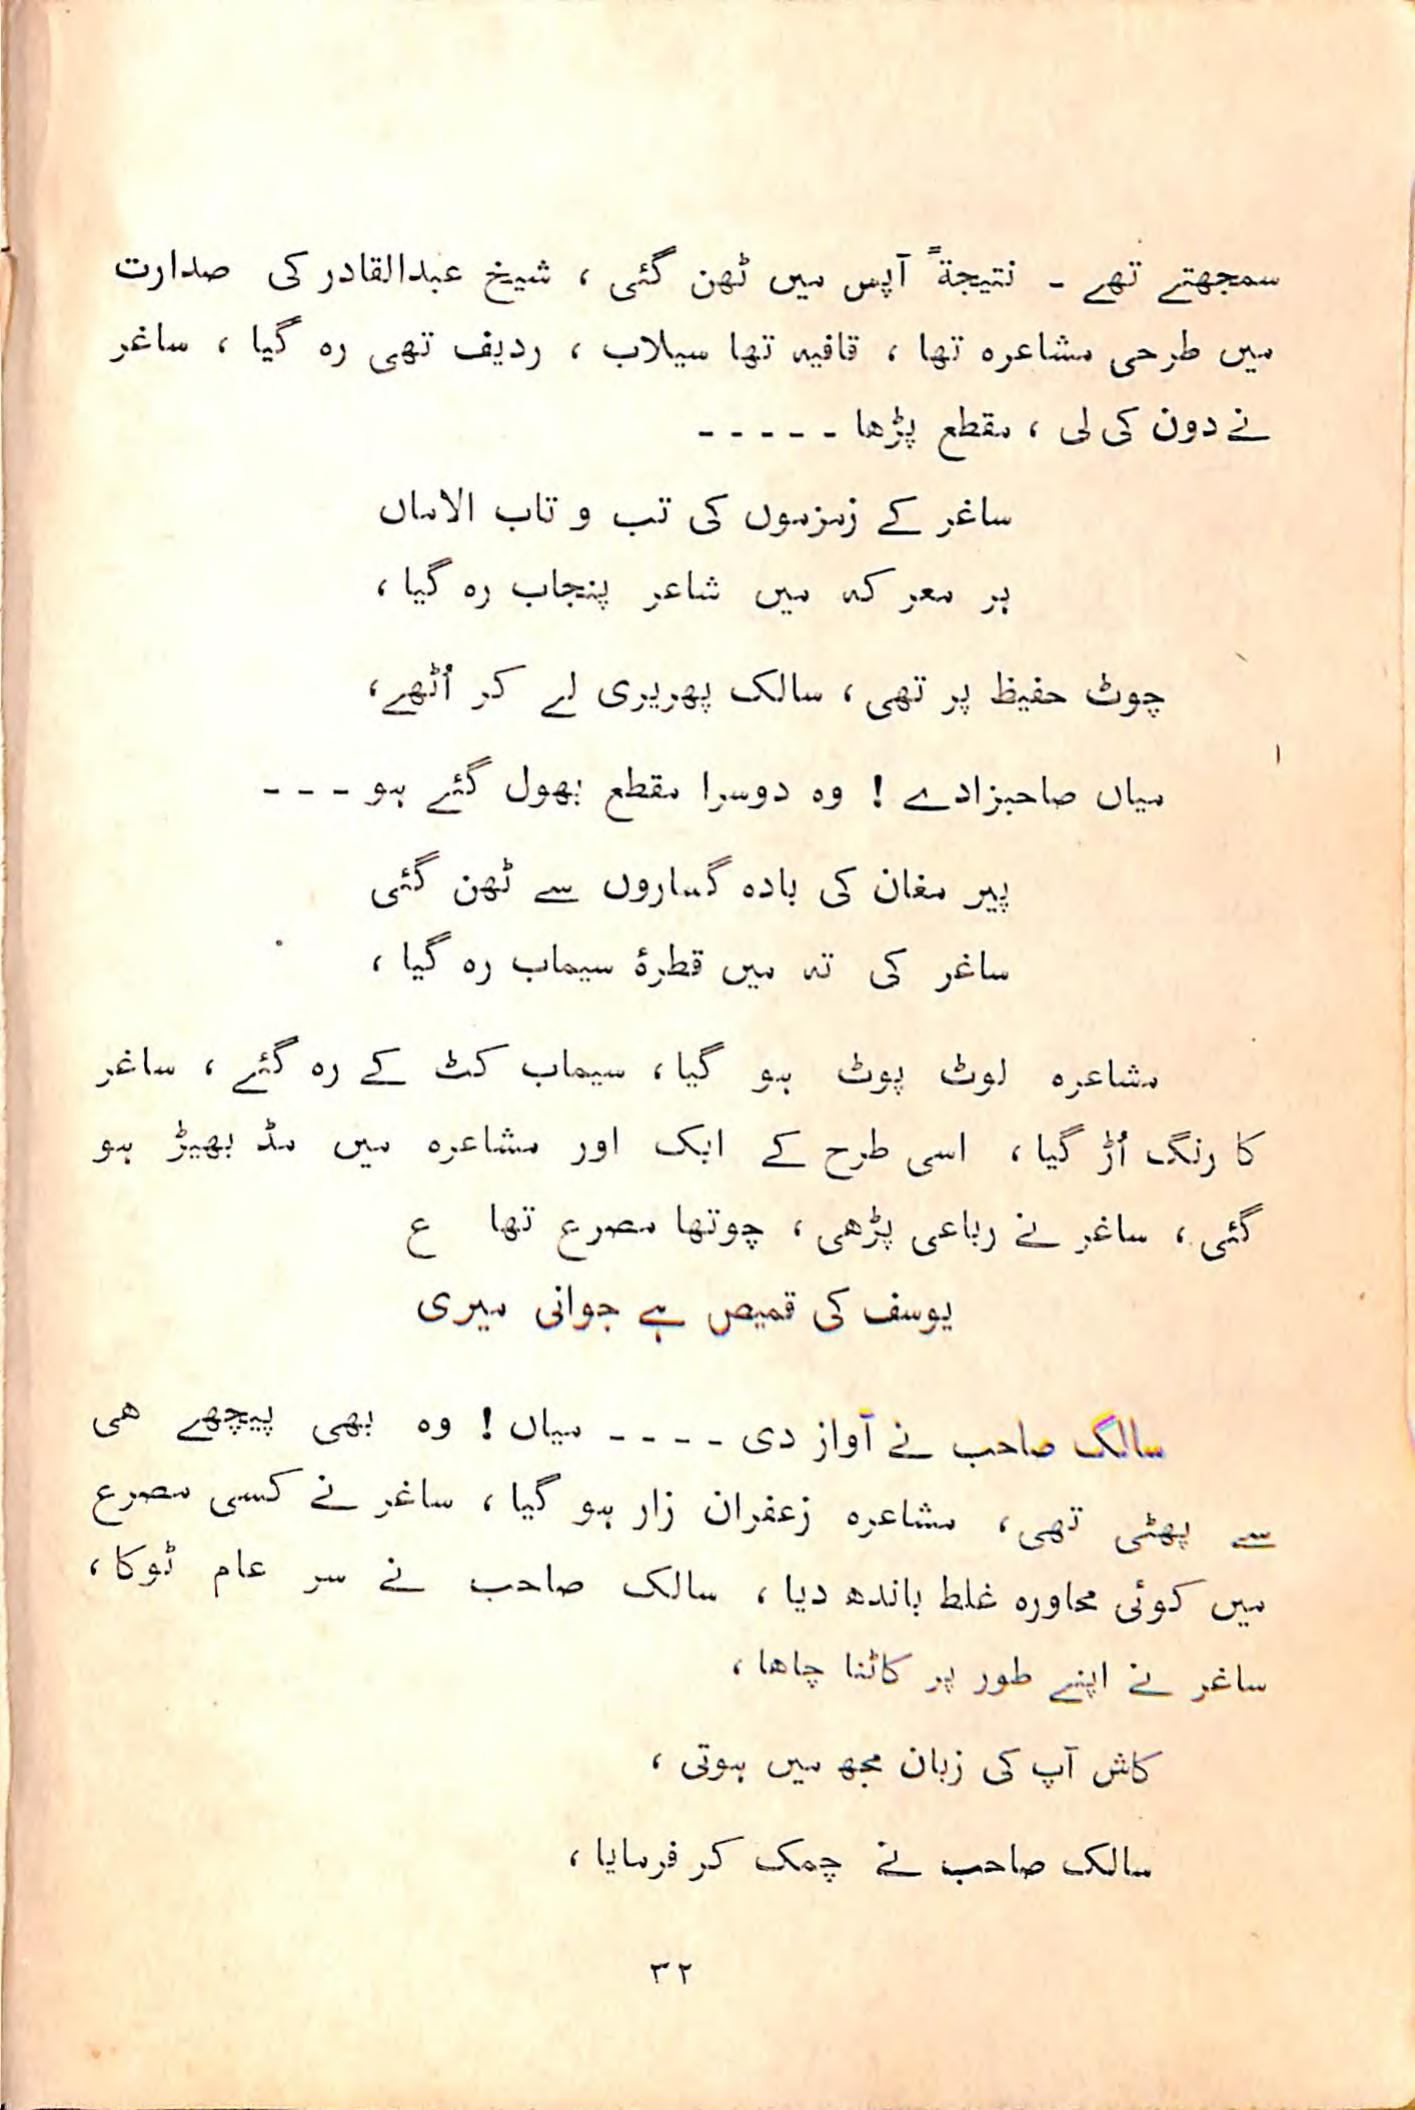 سمجھتے تھے ۔ نتیجۃً آپس میں ٹھن گئی ، شیخ عبدالقادر کی صدارت
میں طرحی مشاعرہ تھا ، قافیہ تھا سیلاب ، ردیف تھی رہ گیا ، ساغر
نے دون کی لی ، مقطع پڑھا ۔ ۔ ۔ ۔ ۔
ساغر کے زمزموں کی تب و تاب الاماں
ہر معرکہ میں شاعر پنجاب رہ گیا ،
چوٹ حفیظ پر تھی ، سالک پھریری لے کر اُٹھے ،
میاں صاحبزادے ! وہ دوسرا مقطع بھول گئے ہو ۔ ۔ ۔
پیر مغان کی بادہ گساروں سے ٹھن گئی
ساغر کی تہ میں قطرۂ سیماب رہ گیا ،
مشاعرہ لوٹ پوٹ ہو گیا ، سیماب کٹ کے رہ گئے ، ساغر
کا رنگ اُڑ گیا ، اسی طرح کے ایک اور مشاعرہ میں مڈ بھیڑ ہو
گئی ، ساغر نے رباعی پڑھی ، چوتھا مصرع تھا ع
یوسف کی قمیص ہے جوانی میری
سالک صاحب نے آواز دی ۔ ۔ ۔ ۔ میاں ! وہ بھی پیچھے ھی
سے پھٹی تھی ، مشاعرہ زعفران زار ہو گیا ، ساغر نے کسی مصرع
میں کوئی محاورہ غلط باندھ دیا ، سالک صاحب نے سر عام ٹوکا ،
ساغر نے اپنے طور پر کاٹنا چاھا ،
کاش آپ کی زبان مجھ میں ہوتی ،
سالک صاحب نے چمک کر فرمایا ،
۳۲